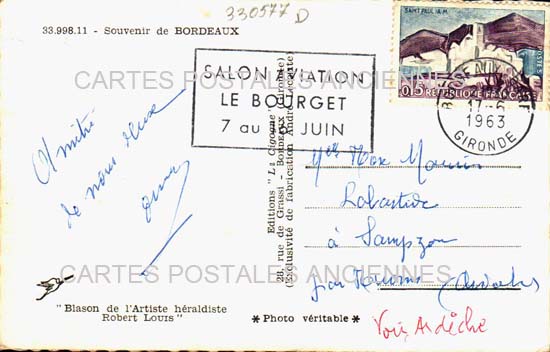 330577 D
33.998.11 - Souvenir de BORDEAUX
SAINT-PAUL (A.M.)
POSTES
0,15 REPUBLIQUE FRANÇAISE
SALON AVIATION
LE BOURGET
7 au JUIN
17-6
1963
GIRONDE
CARTES POSTALES ANCIENNES
Amitié
de nous deux
Editions "La Cigogne"
28, rue de Grassi - BORDEAUX (Gironde)
(Exclusivité de fabrication André Leconte)
Max
Labastide
à Sampzon
par
Voir Ardèche
CARTES POSTALES ANCIENNES
"Blason de l'Artiste héraldiste
Robert Louis"
* Photo véritable *